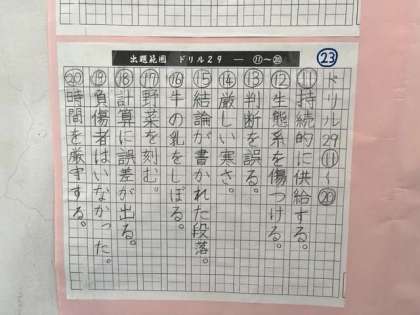 出題範囲 ドリル29 ― ⑪〜⑳
㉓
ドリル29⑪〜⑳
⑪持続的に供給する。
⑫生態系を傷つける。
⑬判断を誤る。
⑭厳しい寒さ。
⑮結論が書かれた段落。
⑯牛の乳をしぼる。
⑰野菜を刻む。
⑱計算に誤差が出る。
⑲負傷者はいなかった。
⑳時間を厳守する。